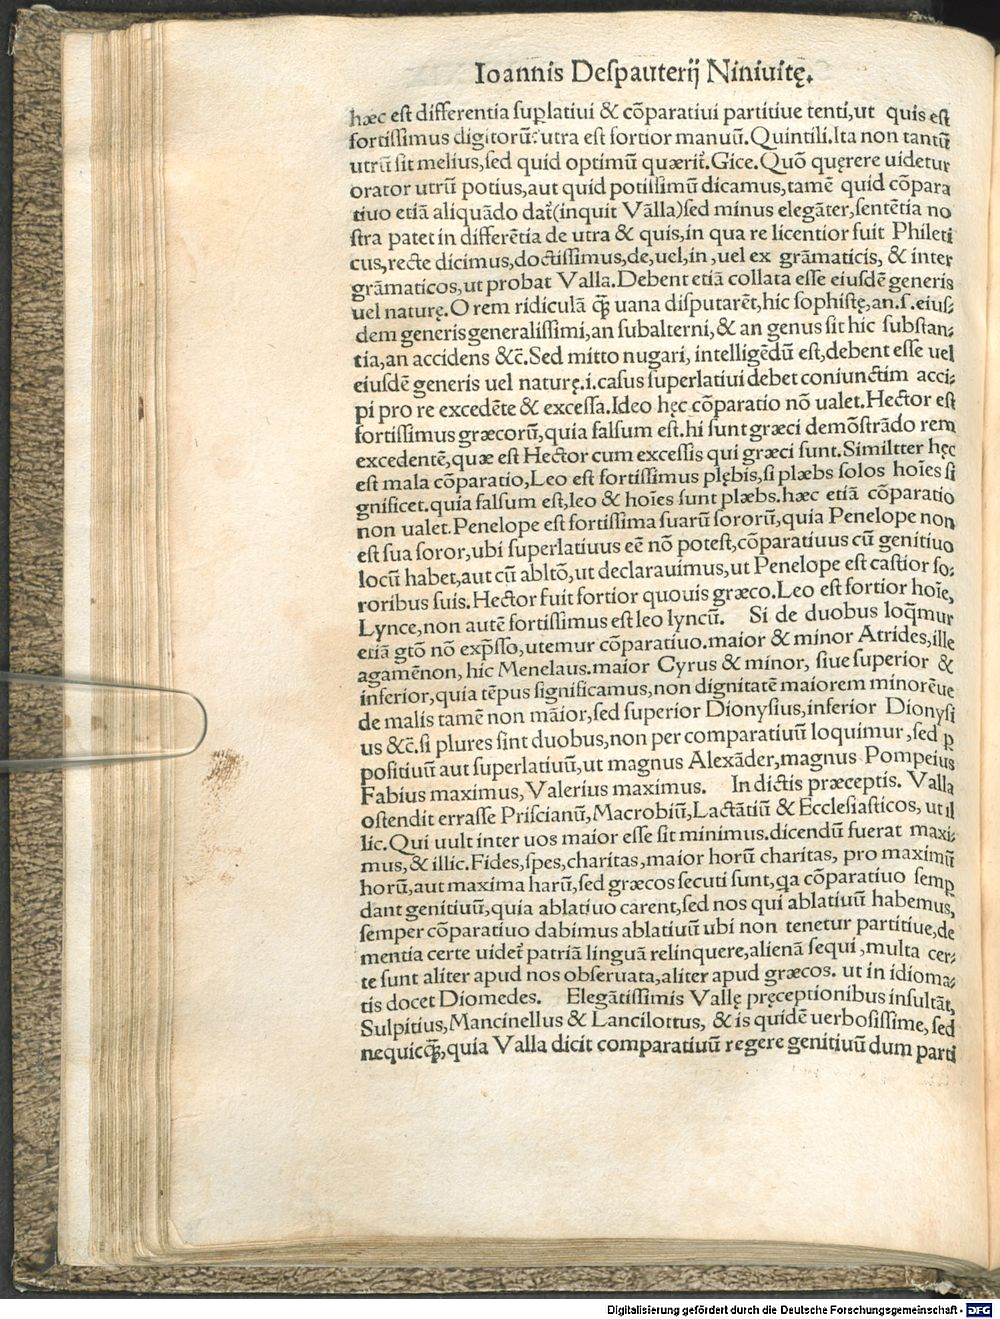 Ioannis Despauterij Niniuitę.
hæc est differentia suꝑlatiui & cõparatiui partitiue tenti,ut quis est
fortissimus digitorũ: utra est fortior manuũ. Quintili. Ita non tantũ
utrũ sit melius, sed quid optimũ quærit̃. Gice. Quõ quęrere uidetur
orator utrũ potius, aut quid potissimũ dicamus, tamẽ quid cõpara
tiuo etiã aliquãdo dat̃(inquit Vãlla)sed minus elegãter, sentẽtia no
stra patet in differẽtia de utra & quis, in qua re licentior fuit Phileti
cus, recte dicimus, doctissimus, de, uel, in, uel ex grãmaticis, & inter
grãmaticos, ut probat Valla. Debent etiã collata esse eiusdẽ generis
uel naturę. O rem ridiculã q̃ uana disputarẽt, hic sophistę, an.s. eius-
dem generis generalissimi, an subalterni, & an genus sit hic substan-
tia, an accidens &c̃. Sed mitto nugari, intelligẽdũ est, debent esse uel
eiusdẽ generis uel naturę.i. casus superlatiui debet coniunctim acci-
pi pro re excedẽte & excessa. Ideo hęc cõparatio nõ ualet. Hector est
fortissimus græcorũ, quia falsum est. hi sunt græci demõstrãdo rem
excedentẽ, quæ est Hector cum excessis qui græci sunt. Similtter hęc
est mala cõparatio, Leo est fortissimus plębis, si plæbs solos hoĩes si
gnificet. quia falsum est, leo & hoĩes sunt plæbs. hæc etiã cõparatio
non ualet. Penelope est fortissima suarũ sororũ, quia Penelope non
est sua soror, ubi superlatiuus eẽ nõ potest, cõparatiuus cũ genitiuo
locũ habet, aut cũ abltõ, ut declarauimus, ut Penelope est castior so-
roribus suis. Hector fuit fortior quouis græco. Leo est fortior hoĩe,
Lynce, non autẽ fortissimus est leo lyncũ. Si de duobus loq̃mur
etiã gtõ nõ exp̃sso, utemur cõparatiuo. maior & minor Atrides, ille
agamẽnon, hic Menelaus. maior Cyrus & minor, siue superior &
inferior, quia tẽpus significamus, non dignitatẽ maiorem minorẽue
de malis tamẽ non mãior, sed superior Dionysius, inferior Dionysi
us &c̃. si plures sint duobus, non per comparatiuũ loquimur, sed ꝑ
positiuũ aut superlatiuũ, ut magnus Alexãder, magnus Pompeius
Fabius maximus, Valerius maximus. In dictis præceptis. Valla
ostendit errasse Priscianũ, Macrobiũ, Lactãtiũ & Ecclesiasticos, ut il
lic. Qui uult inter uos maior esse sit minimus. dicendũ fuerat maxi-
mus, & illic. Fides, spes, charitas, maior horũ charitas, pro maximũ
horũ, aut maxima harũ, sed græcos secuti sunt, qa cõparatiuo semꝑ
dant genitiuũ, quia ablatiuo carent, sed nos qui ablatiuũ habemus,
semper cõparatiuo dabimus ablatiuũ ubi non tenetur partitiue, de
mentia certe uidet̃ patriã linguã relinquere, alienã sequi, multa cer-
te sunt aliter apud nos obseruata, aliter apud græcos. ut in idioma-
tis docet Diomedes. Elegãtissimis Vallę pręceptionibus insultãt,
Sulpitius, Mancinellus & Lancilottus, & is quidẽ uerbosissime, sed
nequicq̃, quia Valla dicit comparatiuũ regere genitiuũ dum parti
Digitalisierung gefördert durch die Deutsche Forschungsgemeinschaft - DFG